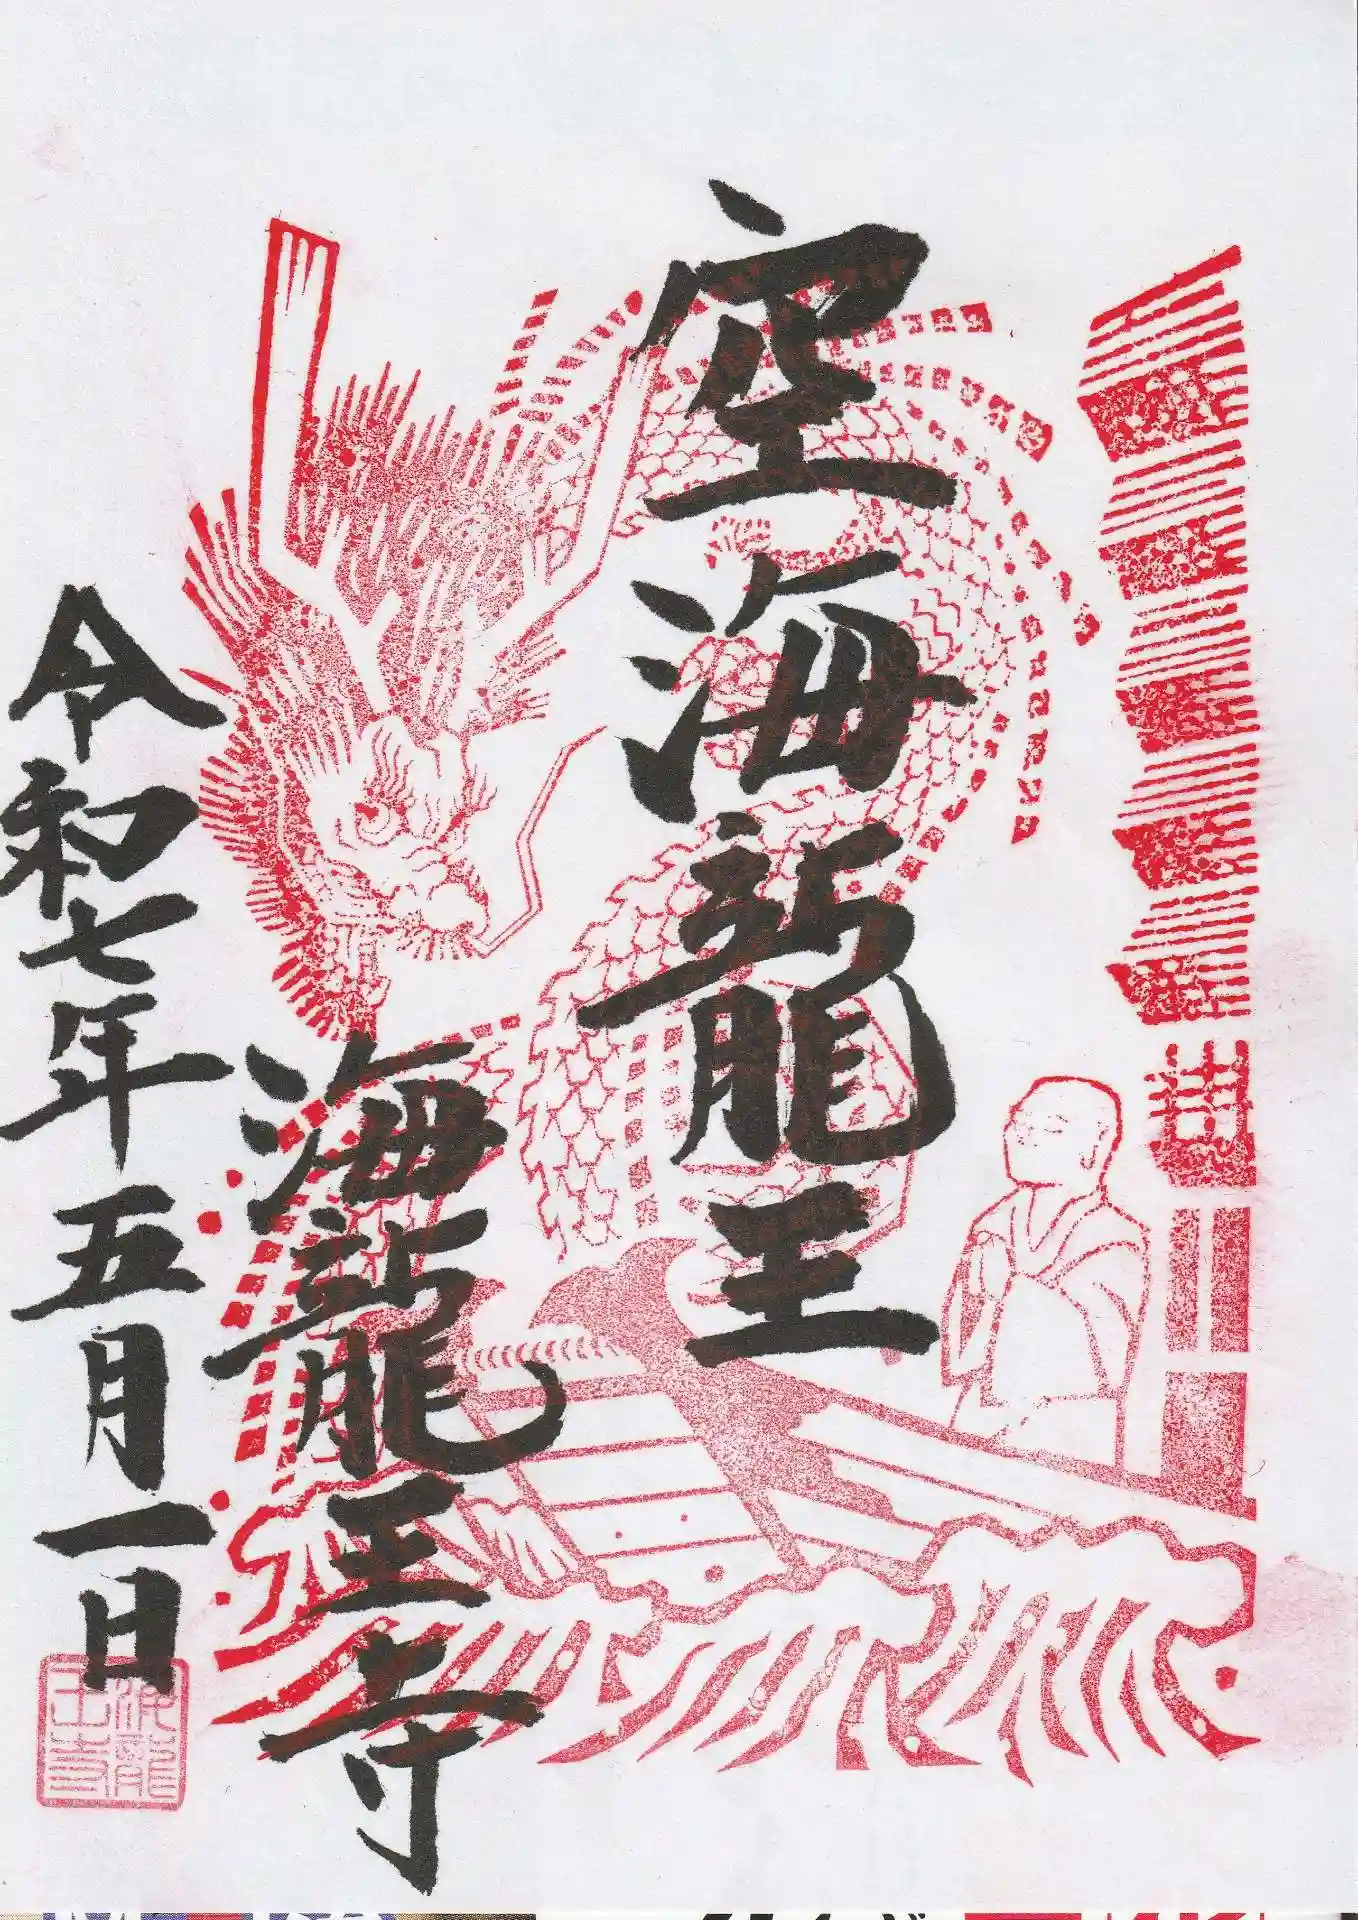 空海龍王
海龍王寺
令和七年五月一日
海龍王寺